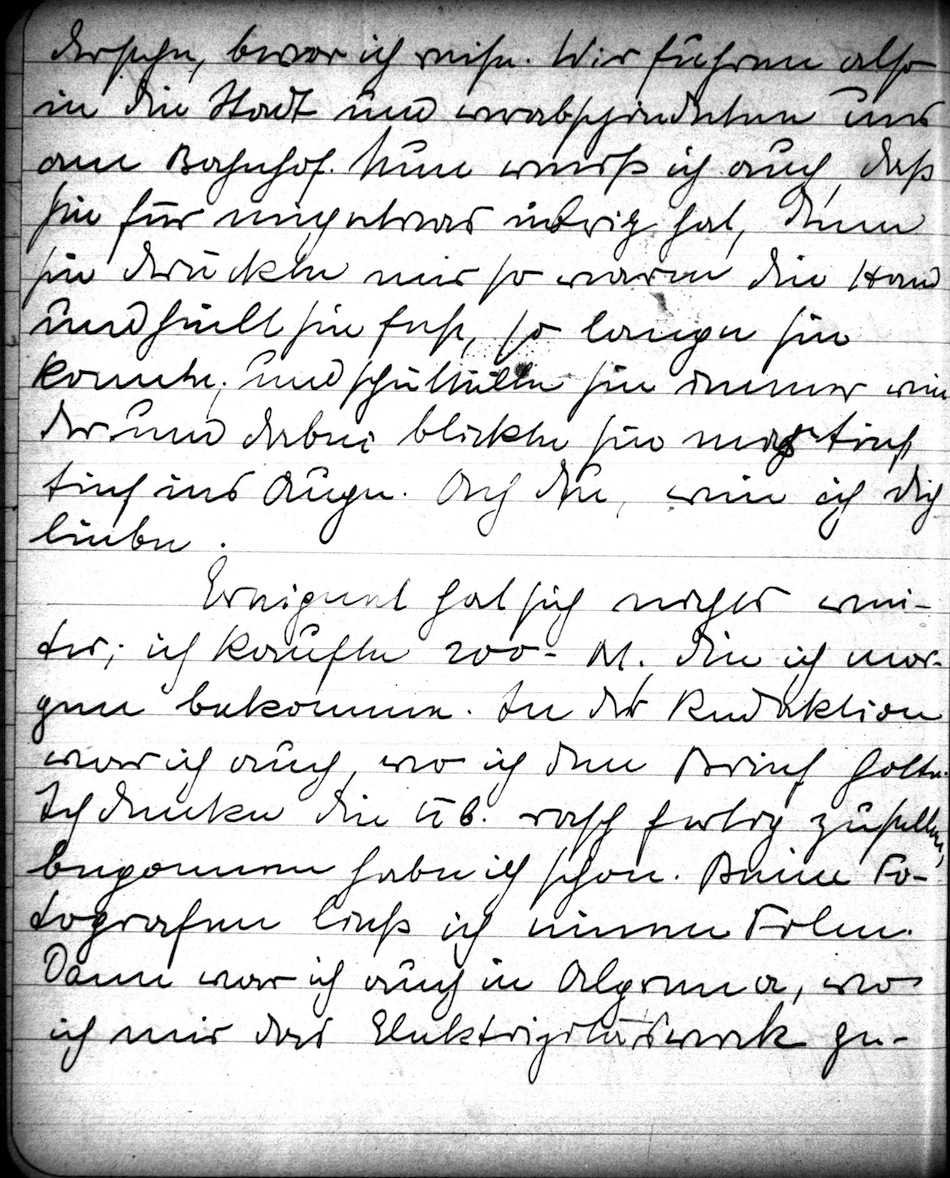 dersehe, bevor ich reise. Wir fuhren also
in die Stadt und verabschiedeten uns
am Bahnhof. Nun weiß ich auch, daß
sie für mich etwas übrig hat, denn
sie drückte mir so warm die Hand
und hielt sie fest, so lange sie
konnte, und schüttelte sie immer wie
der und dabei blickte sie mir tief
tief ins Auge. Ach du, wie ich dich
liebe.
Ereignet hat sich nichts wei-
ter; ich kaufte 200- M. die ich mor-
gen bekomme. In der Redaktion
war ich auch, wo ich den Brief holte.
Ich denke die Üb. rasch fertig zustellen,
begonnen habe ich schon. Beim Fo-
tografen ließ ich einen Film.
Dann war ich auch in, wo
ich mir das Elektrizitätswerk ge-